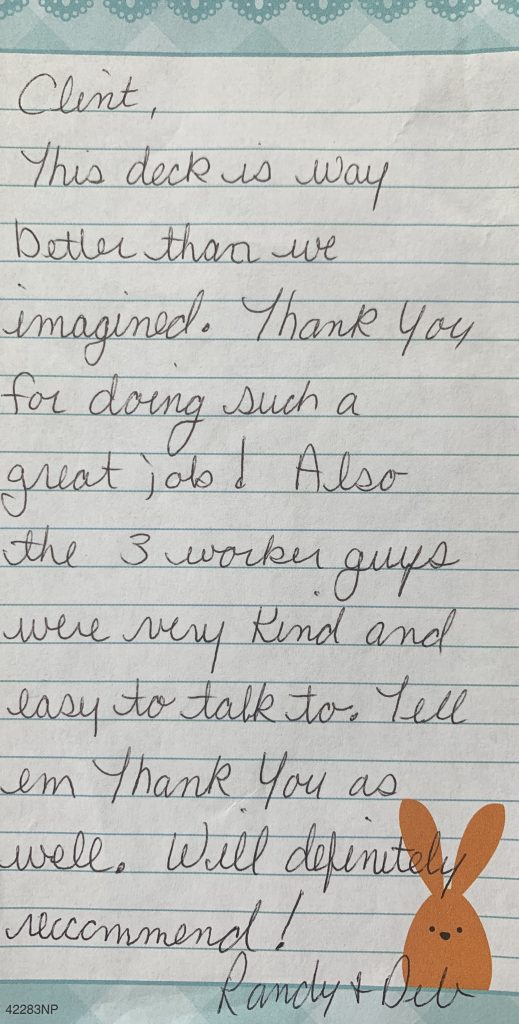 Clint,
This deck is way
better than we
imagined. Thank You
for doing such a
great job! Also
the 3 worker guys
were very kind and
easy to talk to. Tell
em Thank You as
well. Will definetely
reccommend!
Randy + Deb
42283NP